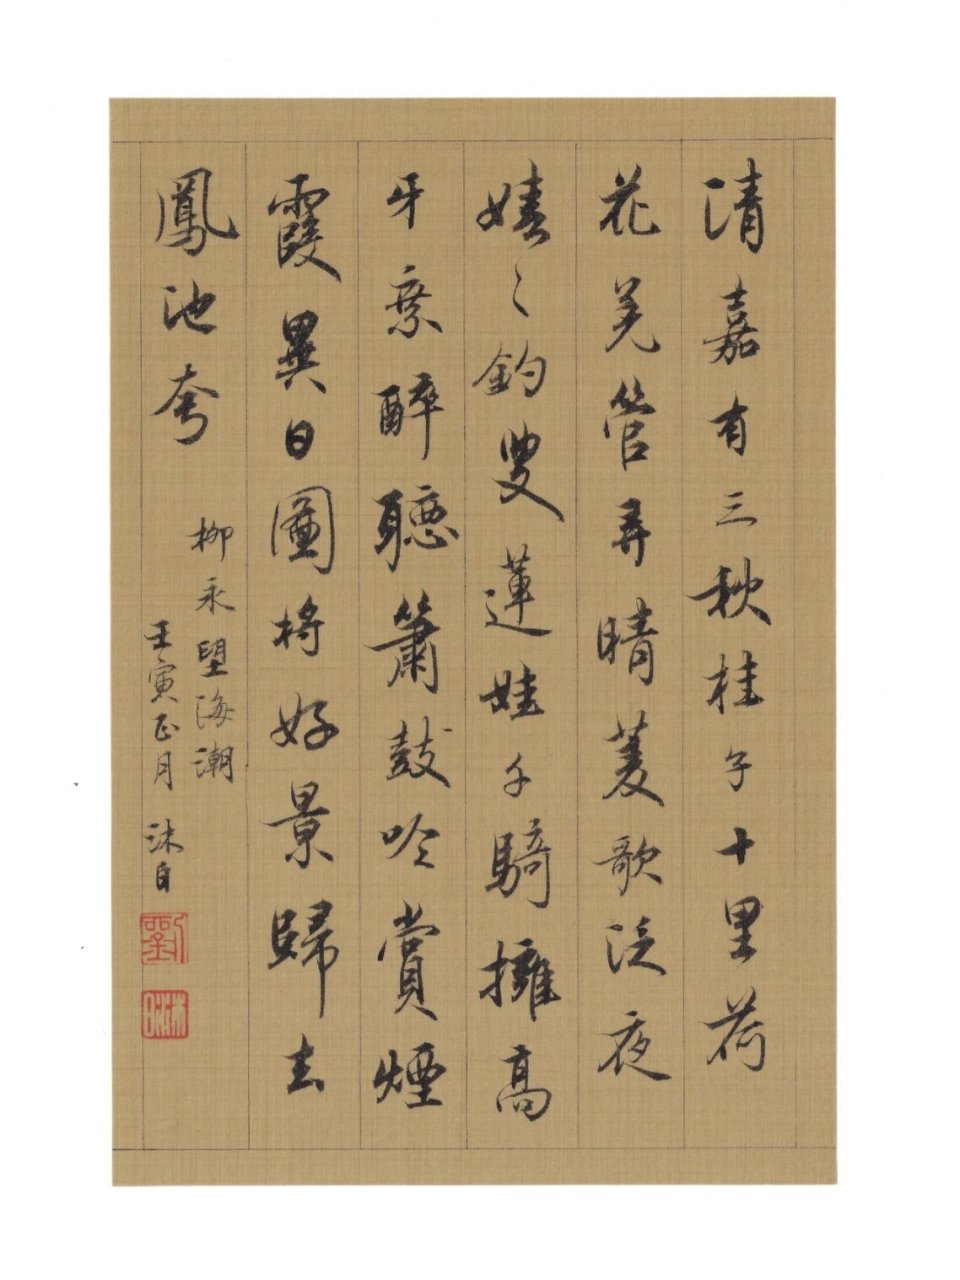 清嘉有三秋桂子十里荷
花羌管弄晴菱歌泛夜
嬉〻釣叟蓮娃千騎擁高
牙乘醉聽簫鼓吟賞煙
霞異日圖將好景歸去
鳳池夸
柳永望海潮
壬寅正月 沐日
劉
沐日